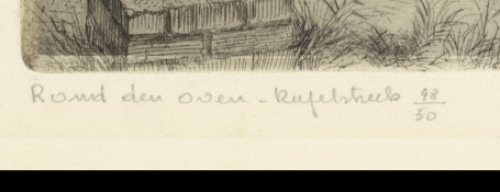 Rond den oven - Rupelstreek 48/50